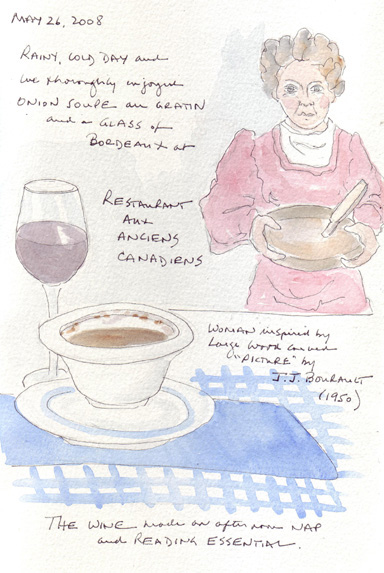 MAY 26, 2008
RAINY, COLD DAY and
we thoroughly enjoyed
ONION SOUPE au GRATIN
and a GLASS of
BORDEAUX at
RESTAURANT
AUX
ANCIENS
CANADIENS
WOMAN inspired by
Large WOOD CARVED
"PICTURE" by
J.J. BOURAULT
(1950)
THE WINE made an afternoon NAP
and READING ESSENTIAL.